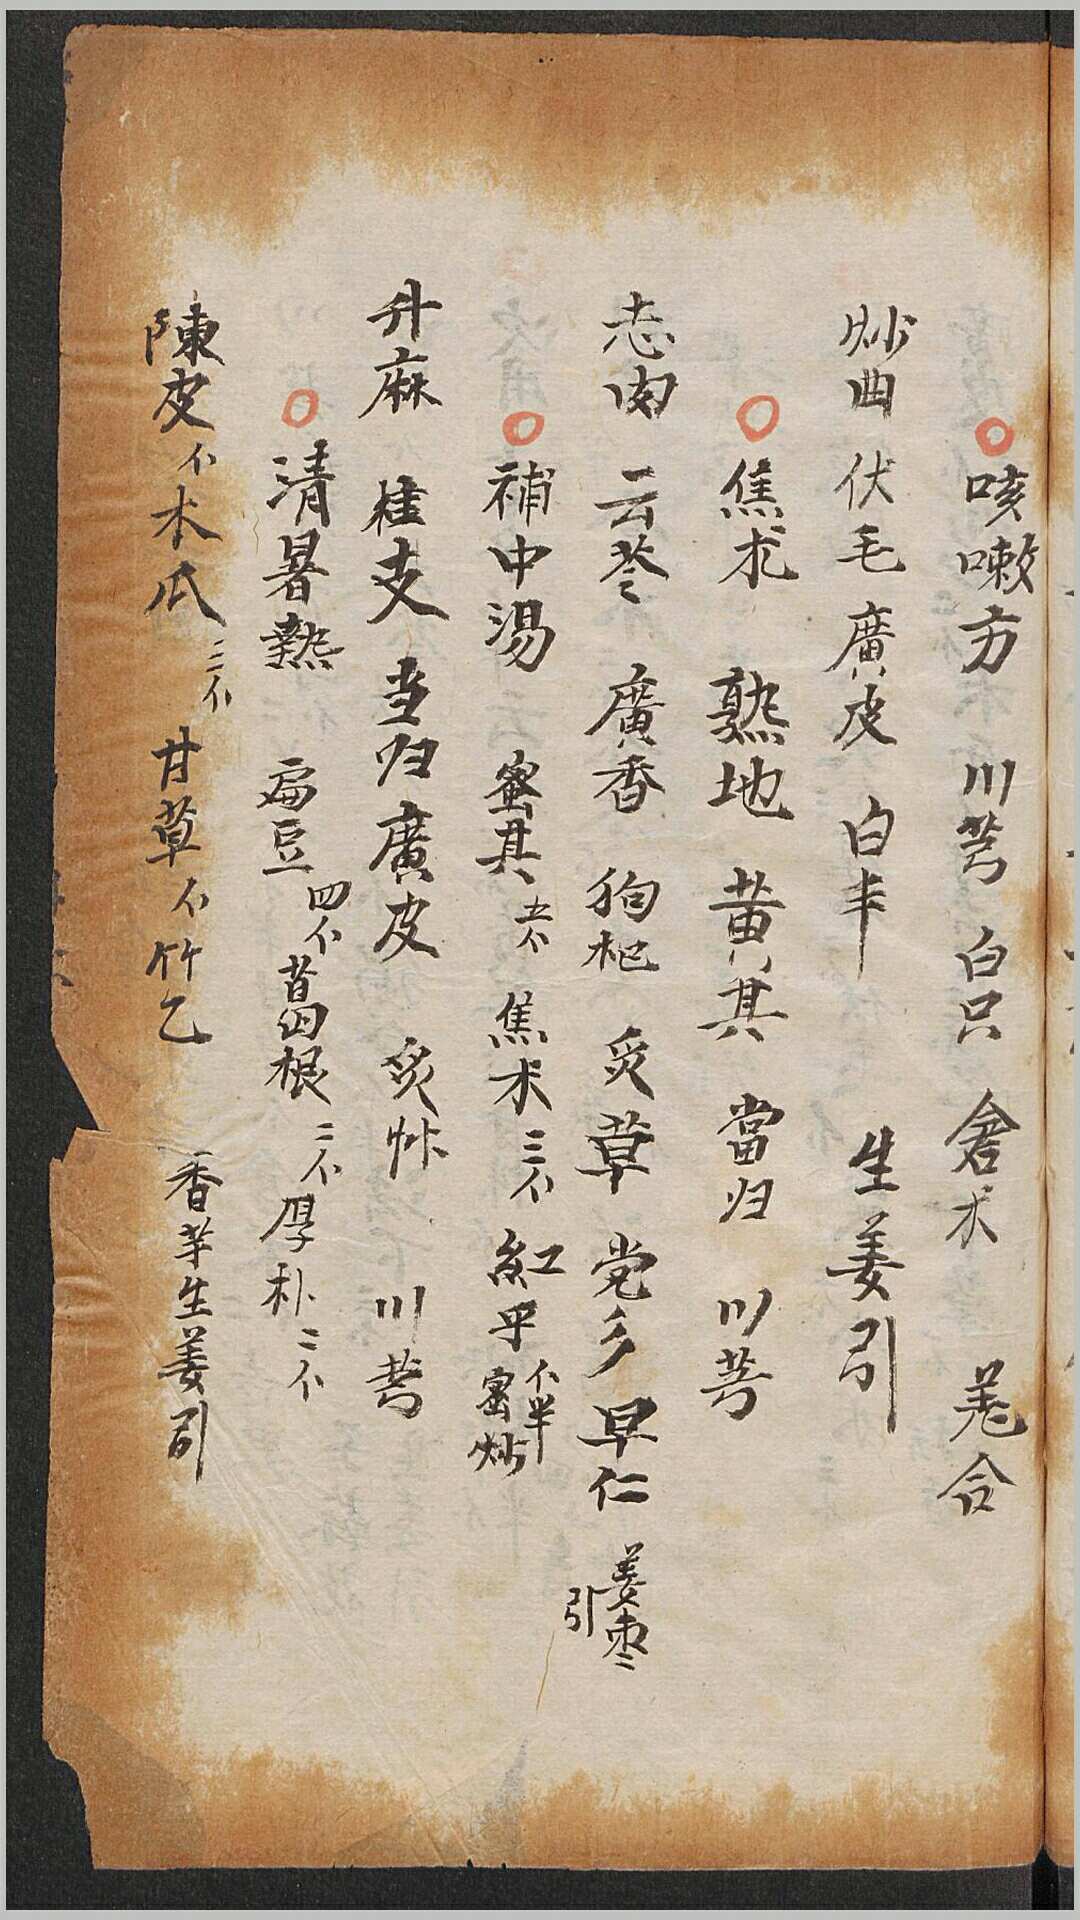 咳嗽方 川芎 白只 倉术 羗合
炒曲 伏毛 廣皮 白半 生姜引
焦朮 熟地 黄其 當归 川芎
志肉 云苓 廣香 狗杞 炙草 党彡 早仁 姜枣引
補中湯 蜜其 五个 焦术 三个 紅平 个半 蜜炒
升麻 桂支 当归 廣皮 炙艸 川芎
清暑熱 扁豆 四个 葛根 二个 厚朴 二个
陳皮 个 木瓜 三个 甘草 个 竹乙 香芋生姜引